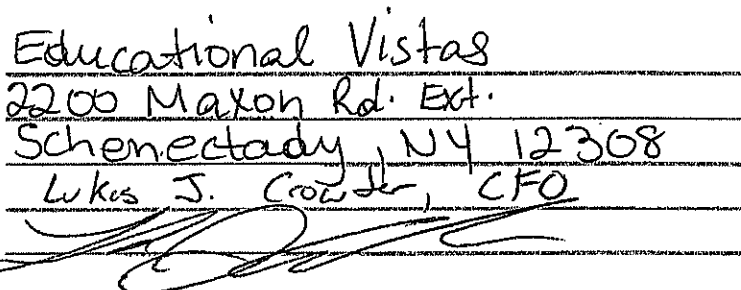 Educational Vistas
2200 Maxon Rd. Ext.
Schenectady, NY 12308
Lukas J. Crowder, CFO